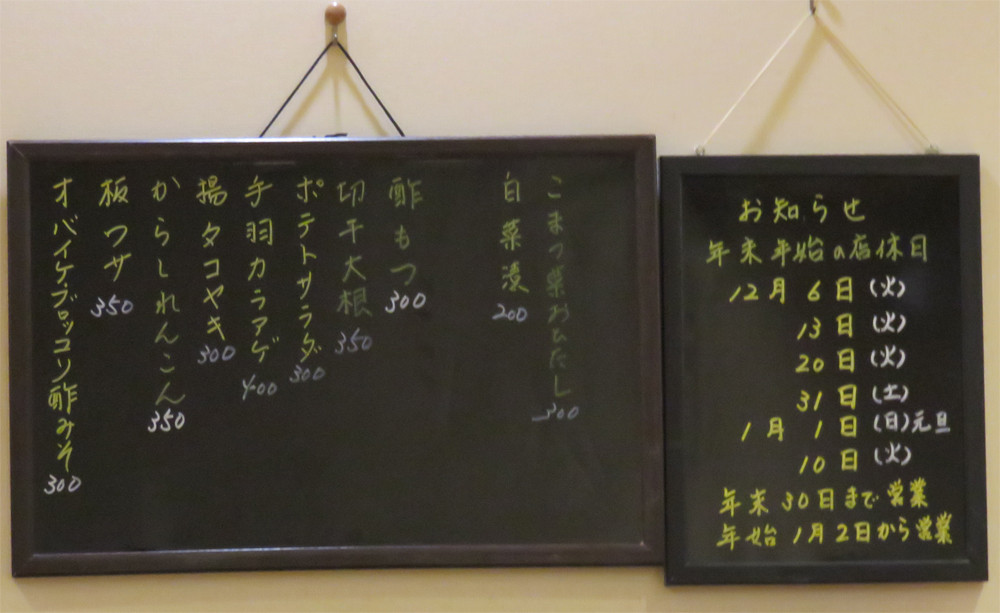 こまつ菜おひたし 300
白菜漬 200
酢もつ 300
切干大根 350
ポテトサラダ 300
手羽カラアゲ 400
揚タコヤキ 300
からしれんこん 350
板ワサ 350
オバイケ・ブロッコリ酢みそ 300
お知らせ
年末年始の店休日
12月 6日(火)
13日(火)
20日(火)
31日(土)
1月 1日(日)元旦
10日(火)
年末30日まで営業
年始1月2日から営業